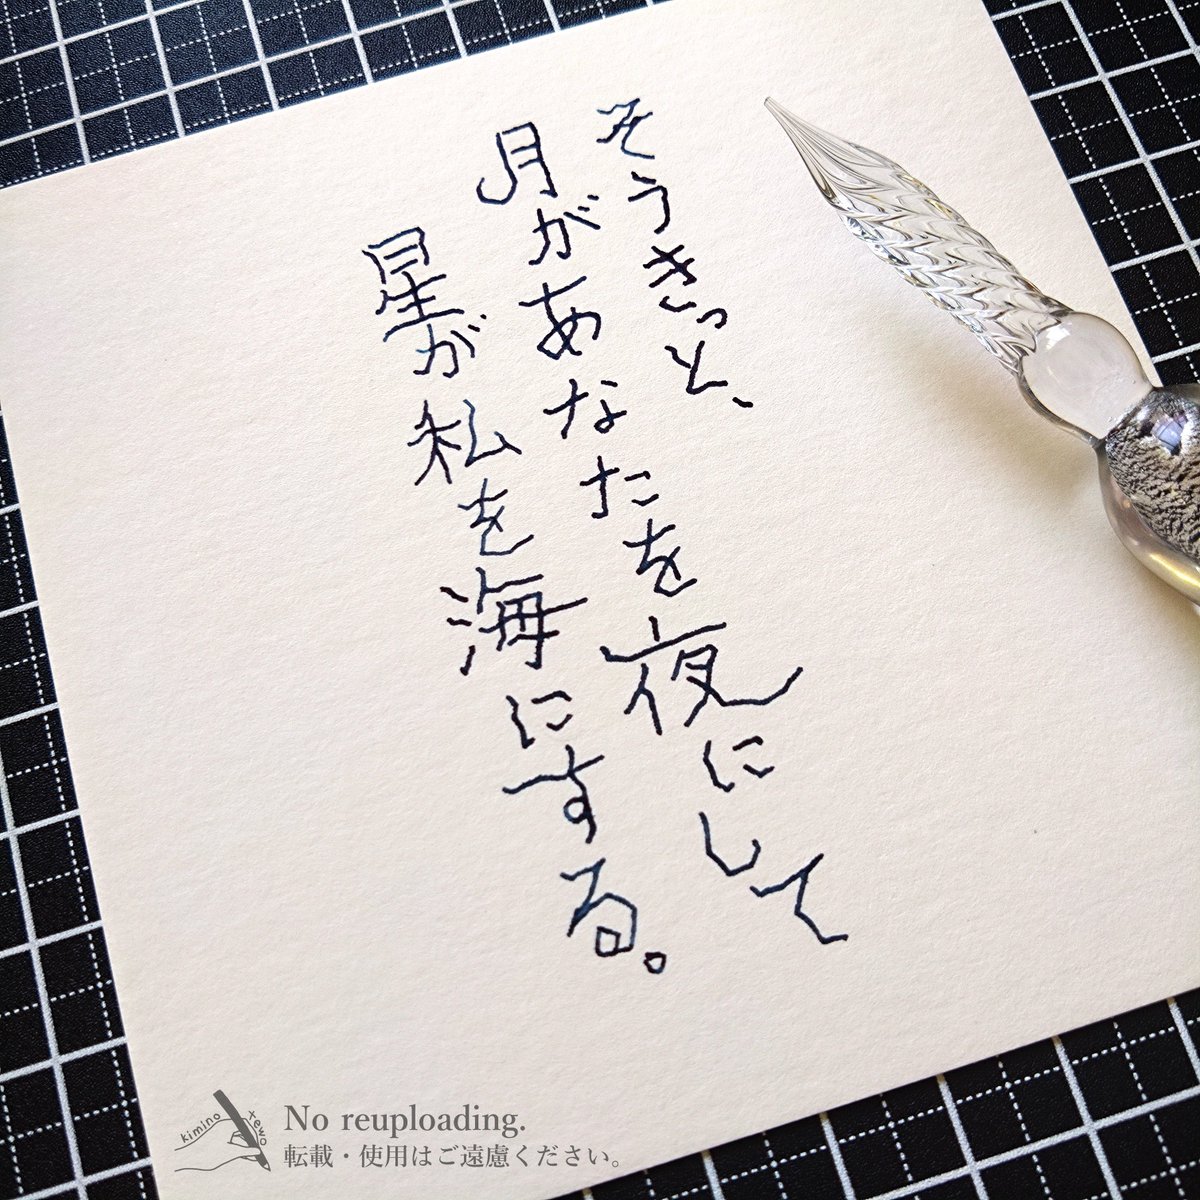 そうきっと、
月があなたを夜にして
星が私を海にする。
kimino tewo
No reuploading.
転載・使用はご遠慮ください。